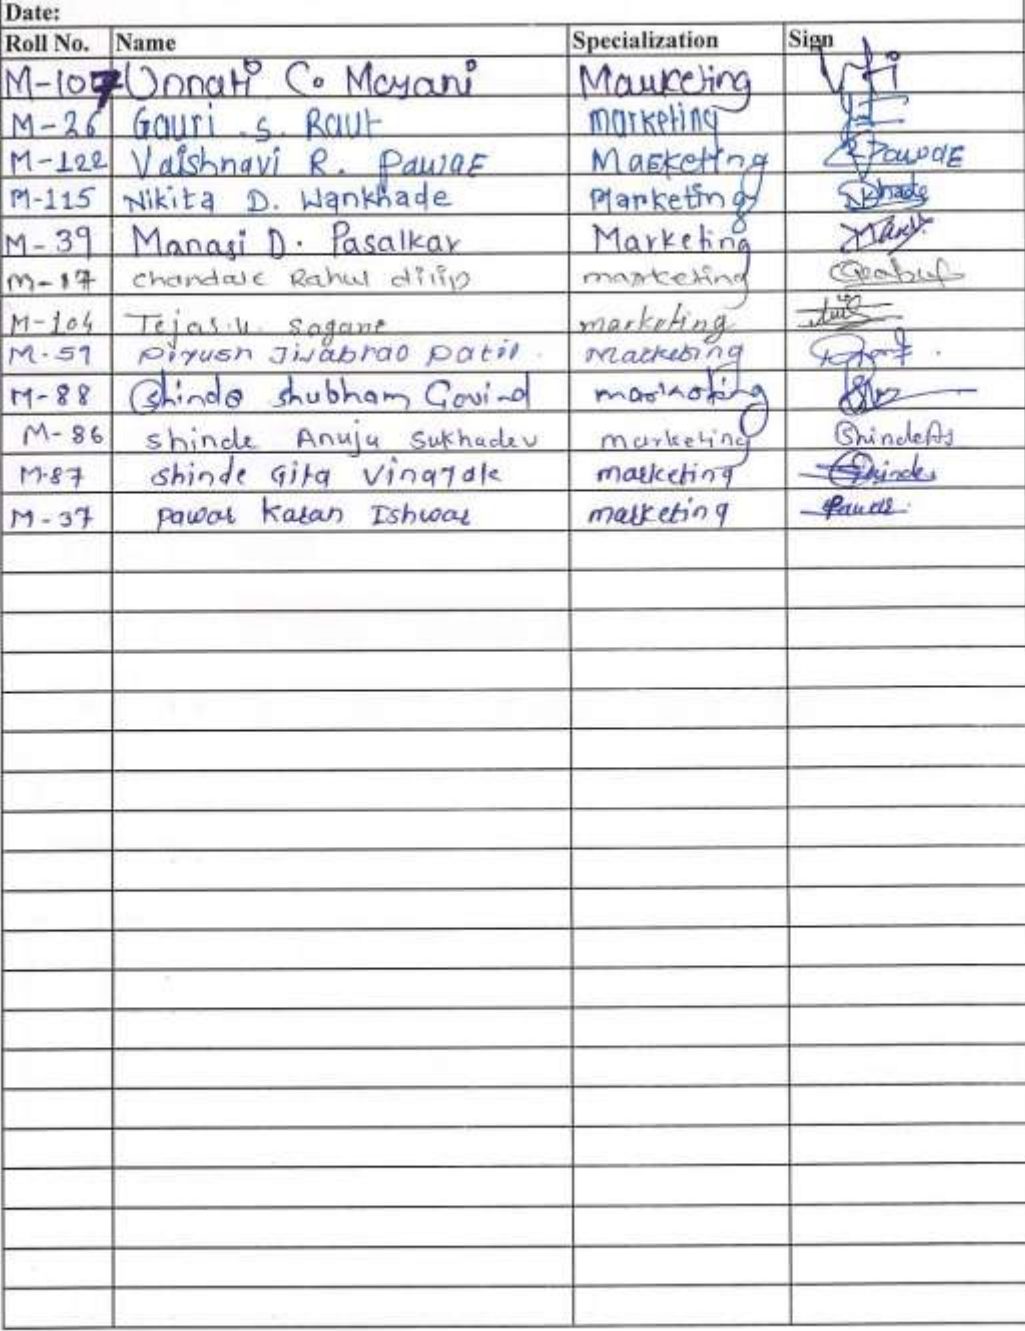 Date:
Roll No. Name Specialization Sign
M-107 Unnati C. Mayani Marketing
M-36 Gauri .S. Raut marketing
M-122 Vaishnavi R. Pawar Marketing Pawar
M-115 Nikita D. Wankhade Marketing
M-39 Manasi D. Pasalkar Marketing
M-17 chandale Rahul dilip marketing
M-104 Tejas.U. Sagane marketing
M-59 Piyush Jivabrao patil. Marketing
M-88 Shinde Shubham Govind marketing
M-86 Shinde Anuja Sukhadev marketing ShindeAs
M-87 Shinde Gita Vinayak marketing Shinde
M-37 Pawar Karan Ishwar marketing Pawar